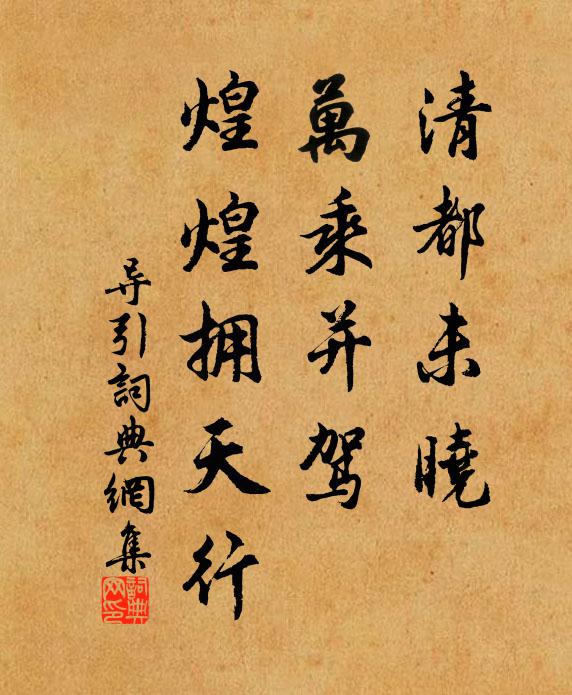 清都未曉
萬乘并駕
煌煌拥天行
导引詞典網集
詞典网印